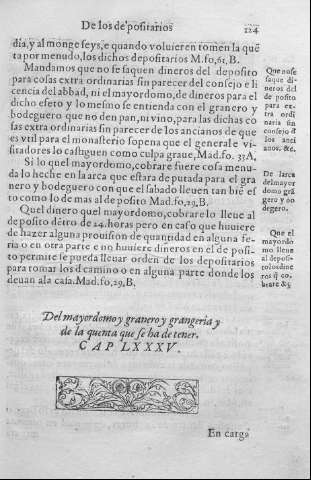 De los depositarios
124
dia, y al monge seys, e quando voluieren tomen la quē
ta por menudo, los dichos depositarios M. fo, 61, B.
Mandamos que no se saquen dineros del deposito
para cosas extra ordinarias sin parecer del consejo e li
cencia del abbad, ni el mayordomo, de dineros para el
dicho eseto y lo mesmo se entienda con el granero y
bodeguero que no den pan, ni vino, para las dichas co
sas extra ordinarias sin parecer de los ancianos de que
es vtil para el monasterio sopena que el general e vi-
sitadores lo castiguen como culpa graue, Mad. fo. 33A,
Si lo quel mayordomo, cobrare fuere cosa menu-
da lo heche en la arca que estara deputada para el gra
nero y bodeguero con que el sabado lleuen tan biē es
to como lo de mas al deposito Mad. fo, 29, B,
Quel dinero quel mayordomo, cobrare lo lleue al
deposito dētro de 24. horas pero en caso que huuiere
de hazer alguna prouision de quantidad en alguna fe-
ria o en otra parte e no huuiere dineros en el de posi-
to permite se pueda lleuar orden de los depositarios
para tomar los d camino o en alguna parte donde los
deuan ala casa. Mad. fo, 29, B,
Que no se
saque di-
neros del
de posito
para ex-
tra ordi
naria sin
consejo d
los anci
anos. &c,
De larca
del mayor
domo grā
gero y bo
degero.
Que el
mayordo
mo lleue
al deposi-
to los dine
ros q̄ co,
brare &c
Del mayordomo y granero y grangeria y
de la quenta que se ha de tener.
CAP LXXXV.
En carga